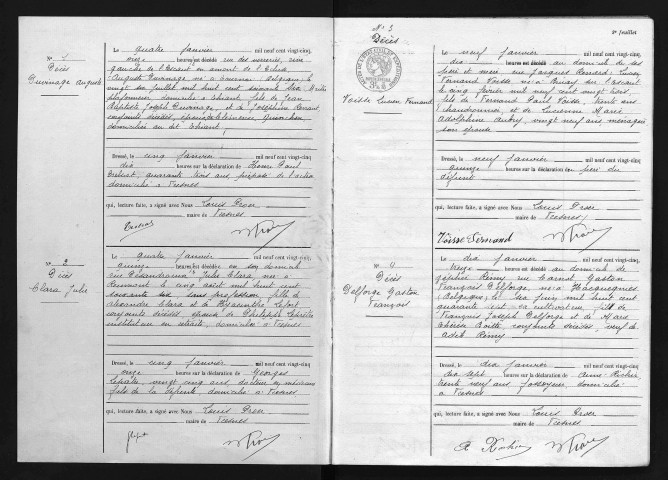 N° 1
Décès
Duvinage Auguste
Le quatre Janvier mil neuf cent vingt-cinq,
onze heures est décédé rue des verreries, rive
gauche de l'Escaut en amont de l'écluse
Auguste Duvinage né à Tournai (Belgique) le
vingt six Juillet mil huit cent soixante
plafonneur domicilié à Thiant, fils de Jean
Baptiste Joseph Duvinage, et de Joséphine
conjoints décédés, époux de
domicilié au dit Thiant.
Dressé, le cinq Janvier mil neuf cent vingt-cinq
dix heures sur la déclaration de Henri Paul
quarante trois ans, préposé de l'octroi
domicilié à Fresnes
qui, lecture faite, a signé avec Nous Louis Droz
maire de Fresnes
N° 2
Décès
Clara Julie
Le quatre Janvier mil neuf cent vingt-cinq,
quinze heures est décédée en son domicile
rue Julie Clara née à
Renumont le cinq août mil huit cent
soixante six sans profession fille de
Alexandre Clara et de Hyacinthe Lefort
conjoints décédés épouse de Philippe
instituteur en retraite, domicilié à Fresnes
Dressé, le cinq Janvier mil neuf cent vingt-cinq
onze heures sur la déclaration de Georges
vingt cinq ans, docteur en médecine
fils de la défunte domicilié à Fresnes
qui, lecture faite, a signé avec Nous Louis Droz
maire de Fresnes
2e feuillet
N° 3
Décès
Voisse Lucien Fernand
Le neuf Janvier mil neuf cent vingt-cinq,
dix heures est décédé au domicile de ses
père et mère rue Jacques Renard Lucien
Fernand Voisse né à Bruay sur l'Escaut
le cinq février mil neuf cent vingt trois,
fils de Fernand Paul Voisse, trente ans
et de Lucienne Marie
Adolphine Aubry, vingt neuf ans ménagère
son épouse
Dressé, le neuf Janvier mil neuf cent vingt-cinq
quinze heures sur la déclaration du père du
défunt
qui, lecture faite, a signé avec Nous Louis Droz
maire de Fresnes
Voisse Fernand
N° 4
Décès
Delforge Gaston
François
Le dix Janvier mil neuf cent vingt-cinq,
treize heures est décédé au domicile de
Remy rue Carnot Gaston
François Delforge, né à Hacquegnies
(Belgique) le six Juin mil huit cent
quarante sept ex cultivateur fils de
François Joseph Delforge et de Marie
Thérèse conjoints décédés, veuf de
Adèle Remy
Dressé, le dix Janvier mil neuf cent vingt-cinq
dix sept heures sur la déclaration de
trente neuf ans fossoyeur, domicilié
à Fresnes
qui, lecture faite, a signé avec Nous Louis Droz
maire de Fresnes